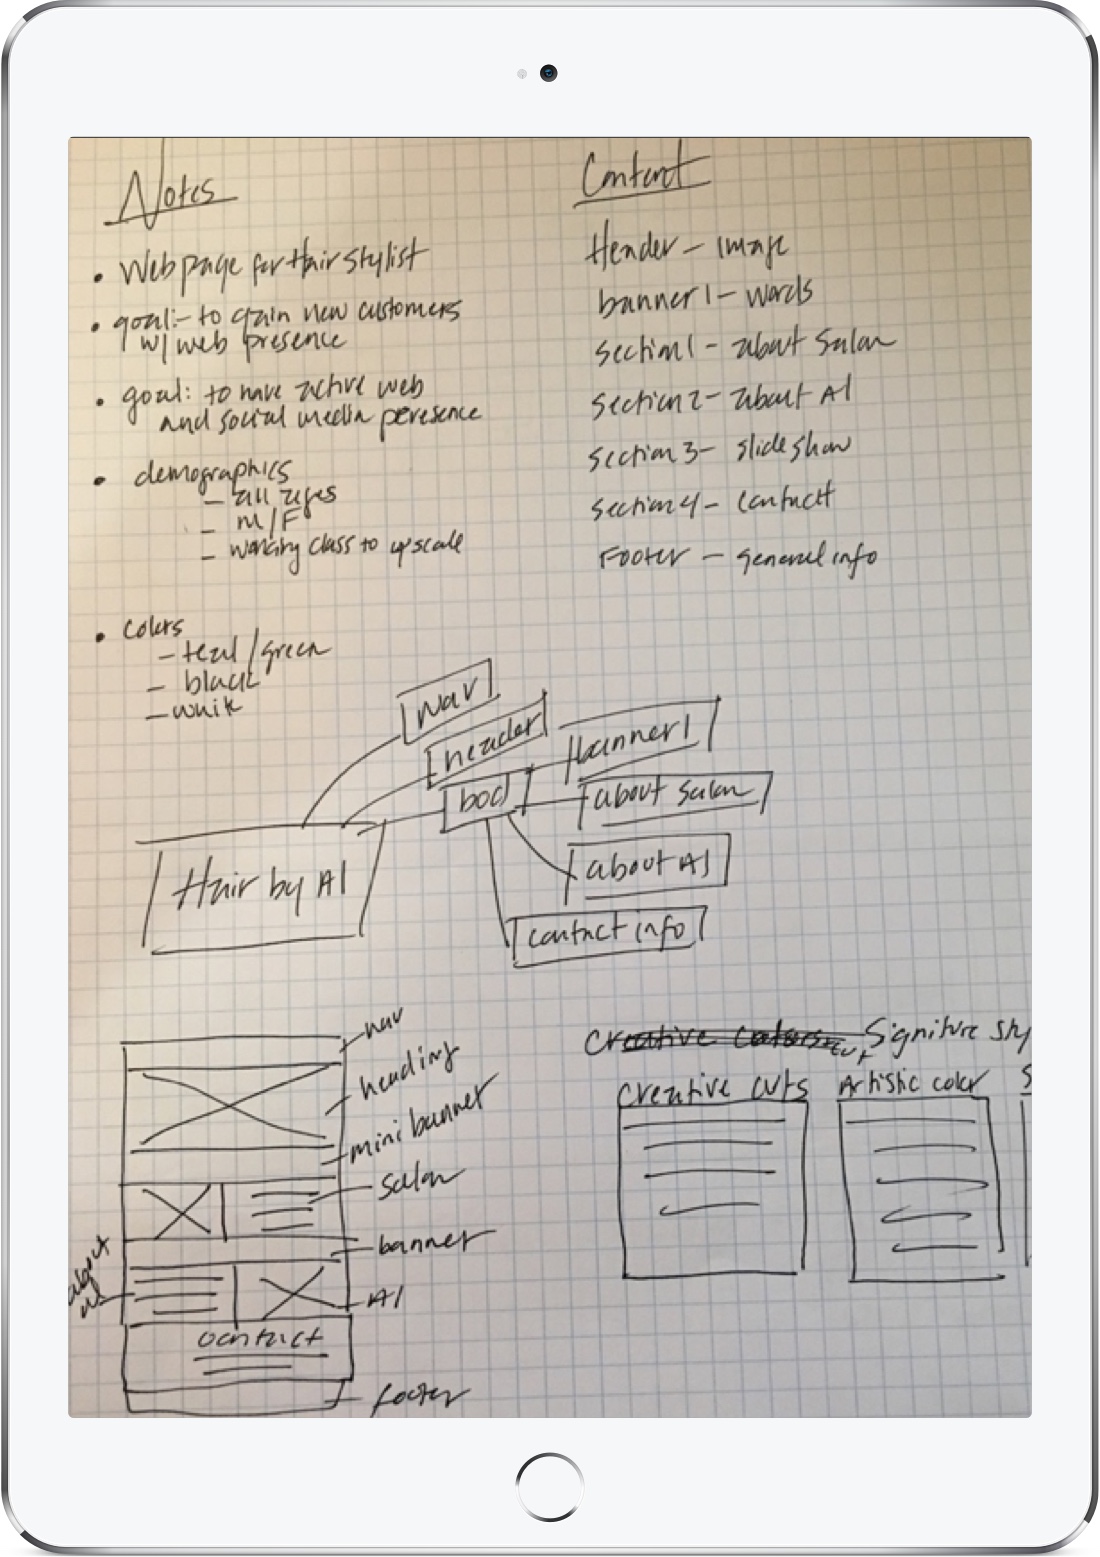 Notes
• Web page for Hair stylist
• goal:- to gain new customers
w/ web presence
• goal: to have active web
and social media peresence
• demographics
- all ages
- M/F
- working class to upscale
• colors
- teal/green
- black
- white
Content
Header - image
banner 1 - words
section 1 - about salon
section 2 - about Al
section 3 - slide show
section 4 - contact
Footer - general info
nav
header
body
banner 1
about salon
about Al
contact info
Hair by Al
nav
heading
mini banner
salon
banner
about
Al
contact
footer
Creative Colors
Signiture sty
Creative cuts
Artistic color
S